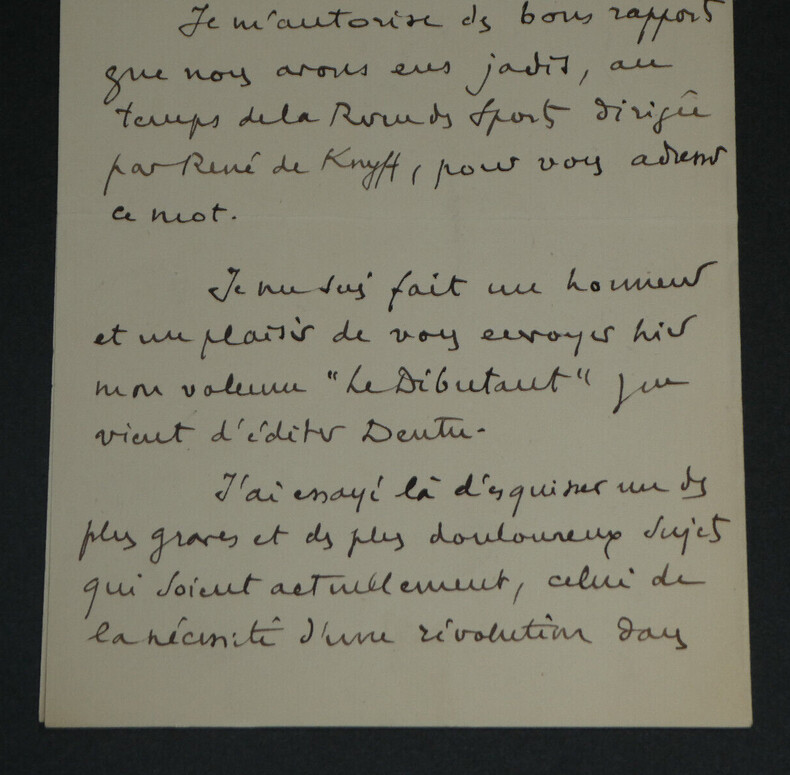 Je m'autorise des bons rapports
que nous avons eus jadis, au
temps de la Revue des Sports dirigée
par René de Knyff, pour vous adresser
ce mot.
Je me suis fait un honneur
et un plaisir de vous envoyer hier
mon volume "Le Débutant" que
vient d'éditer Dentu.
J'ai essayé là d'esquisser un des
plus graves et des plus douloureux sujets
qui soient actuellement, celui de
la nécessité d'une révolution dans